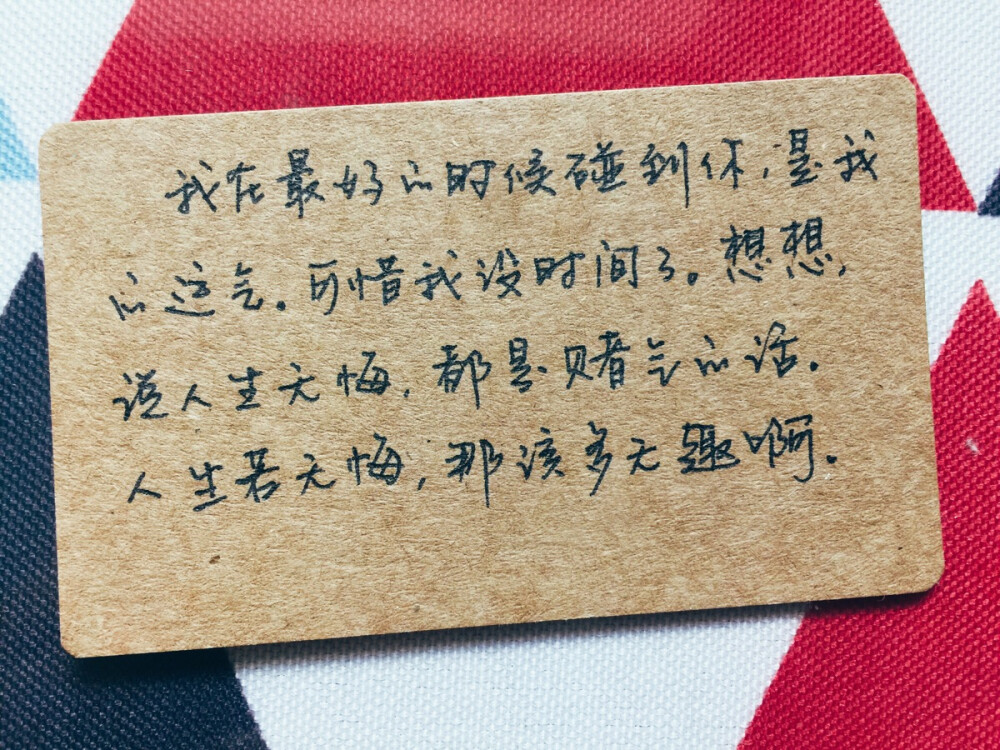 我在最好的时候碰到你，是我
的运气。可惜我没时间了。想想，
说人生无悔，都是赌气的话。
人生若无悔，那该多无趣啊。